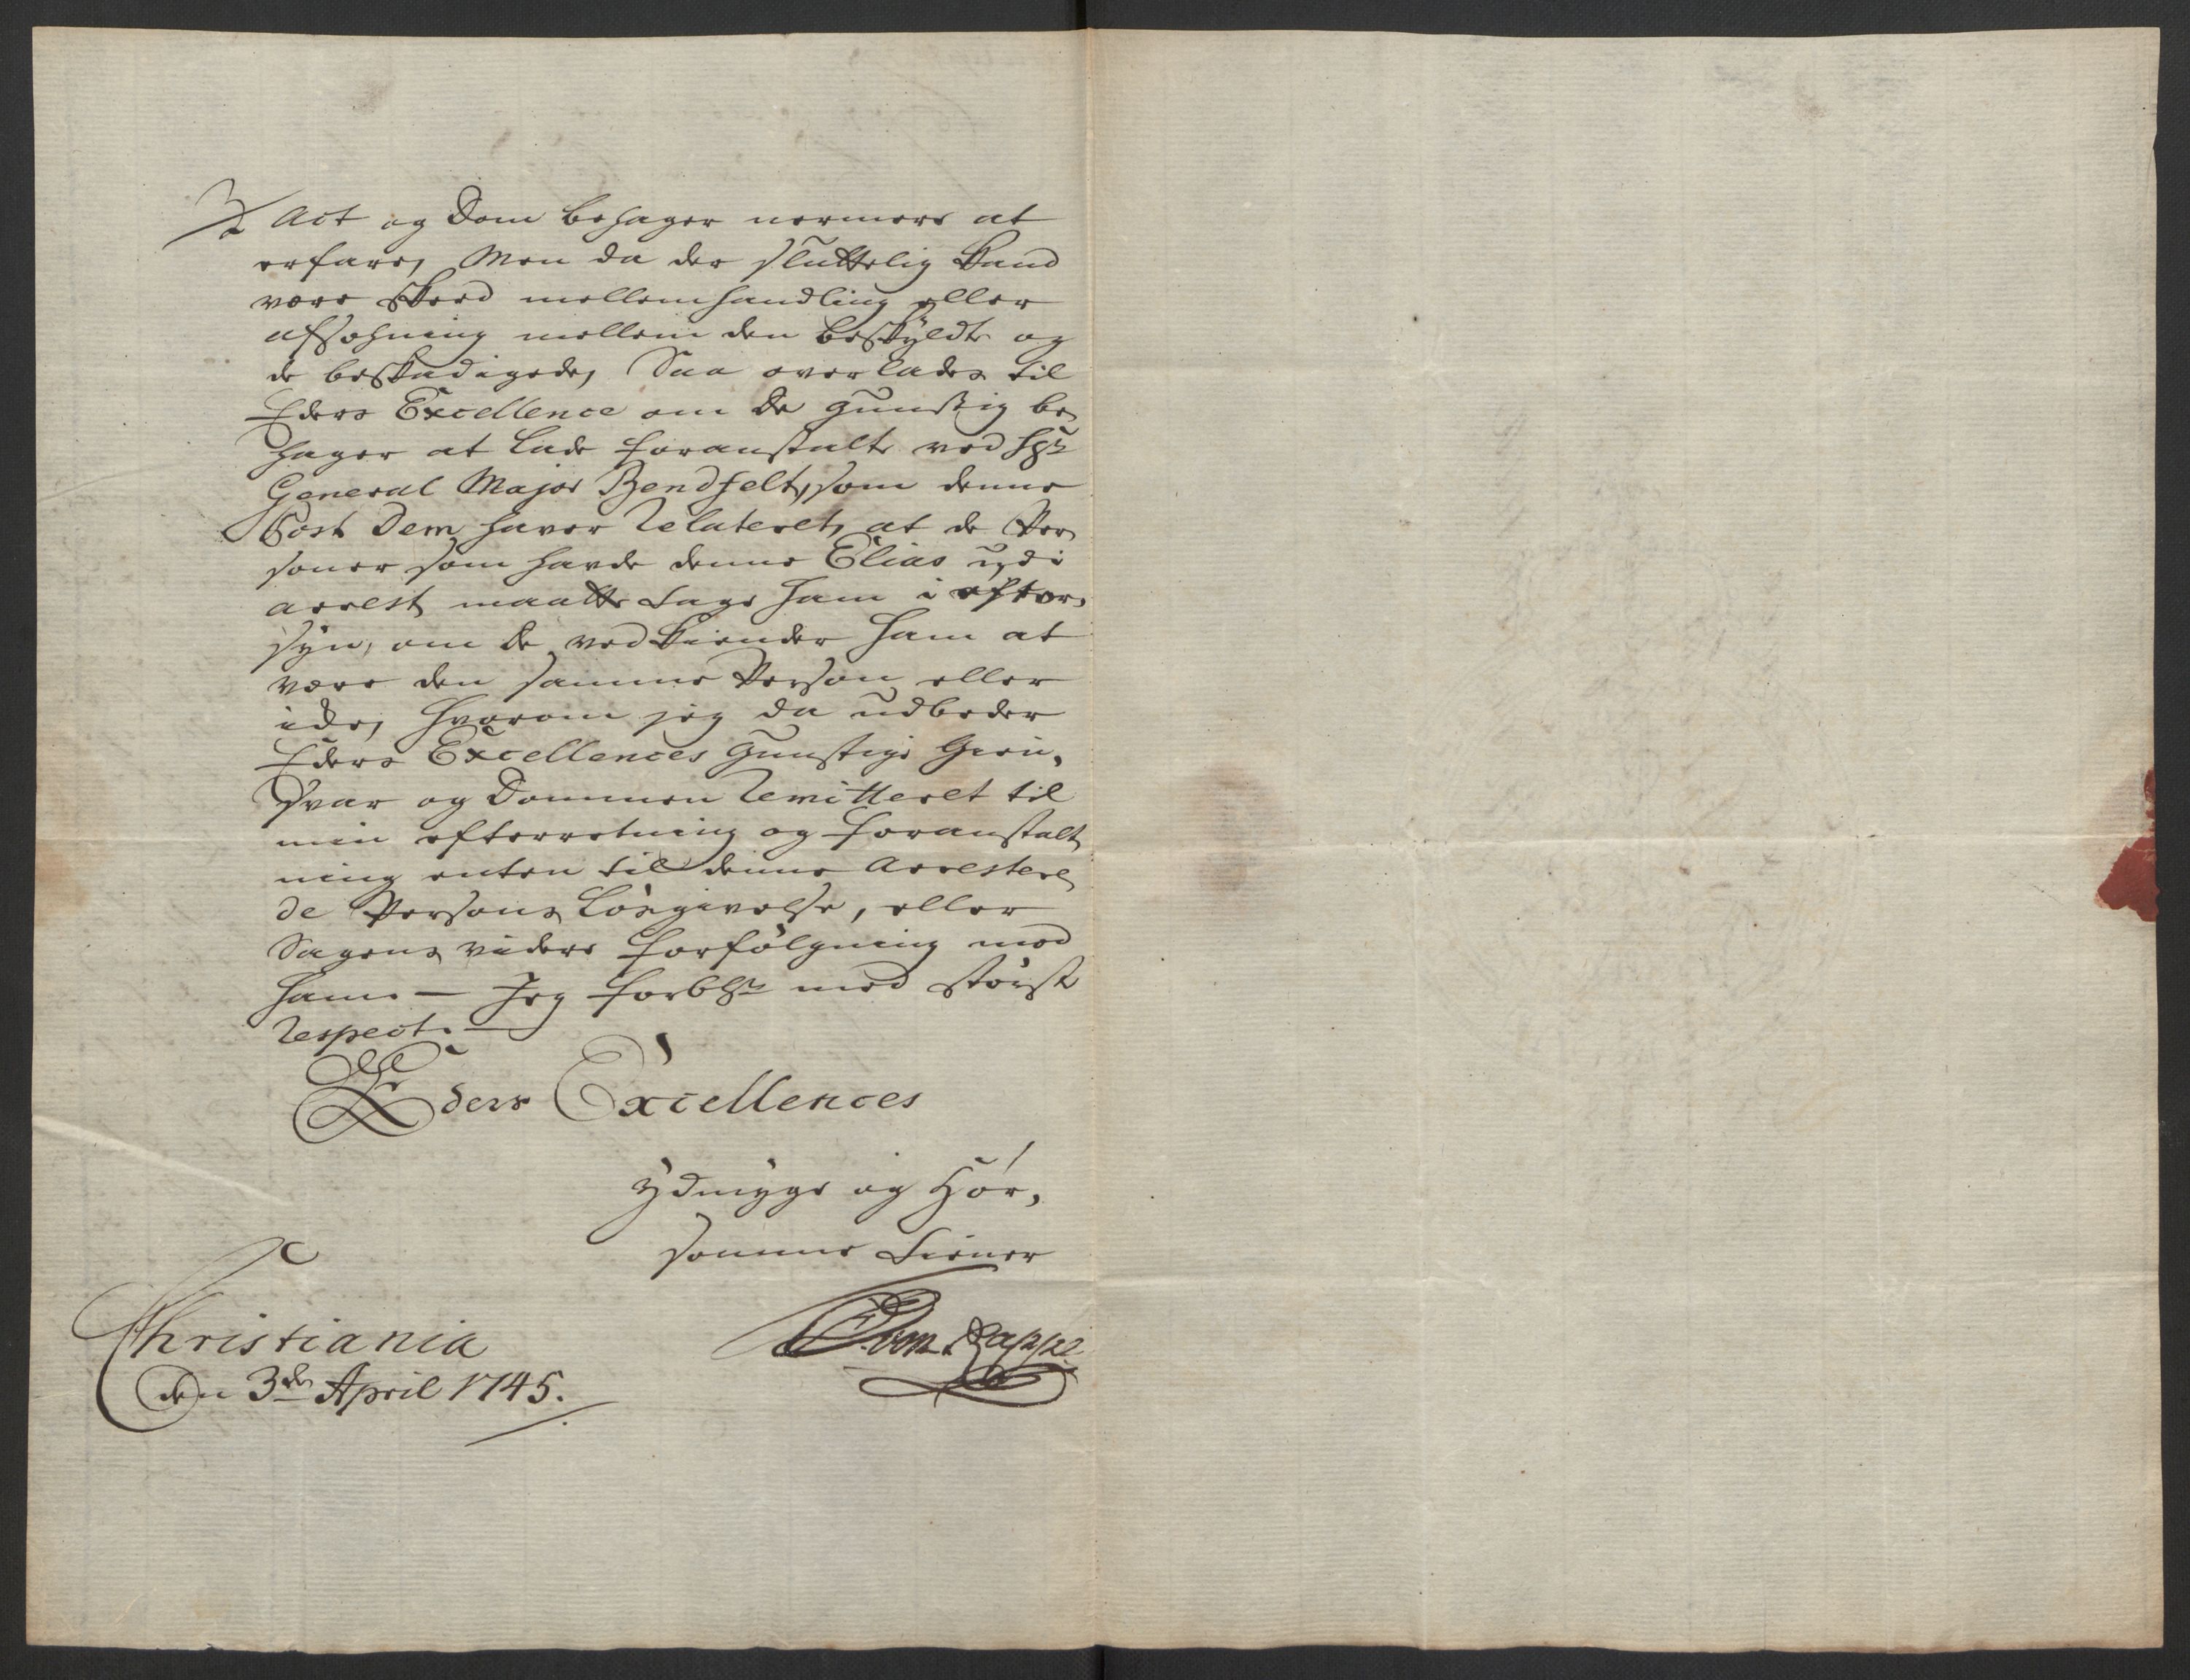 Act og Dom behager nermere at
erfare, Men da der sluttelig kand
være skeed mellemhandling eller
afsohning mellem den beskyldte og
de beskadigede, Saa overlades til
Eders Excellence om De gunstig be,
hager at lade foranstalte ved Hr
General Major Bendfelt, som denne
Post Dem haver Relateret, at de Per,
soner som havde denne Elias udi
arrest, maatte tage ham i efter,
syn, om De vedkiender ham at
være den samme Person eller
icke, hvorom jeg da udbeder
Eders Excellences gunstige Gien,
svar og Dommen Remitteret til
min efterretning og foranstalt,
ning enten til denne Arrestere,
de Persons Løsgivelse, eller
Sagens videre forfølgning mod
ham. — Jeg forblr med størst
Respect. —
Eders Excellences
Ydmyge og Hør,
somme Tiener
von Rappe
Christiania
den 3de April 1745.